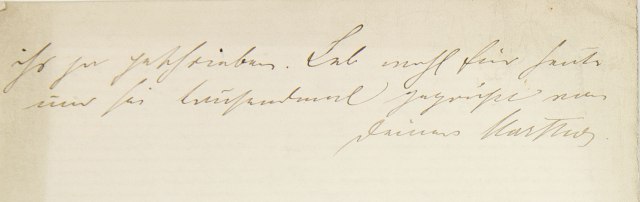 ihr zu geschrieben. Leb wohl für heute
und sei tausendmal gegrüßt von
Deiner Martha.